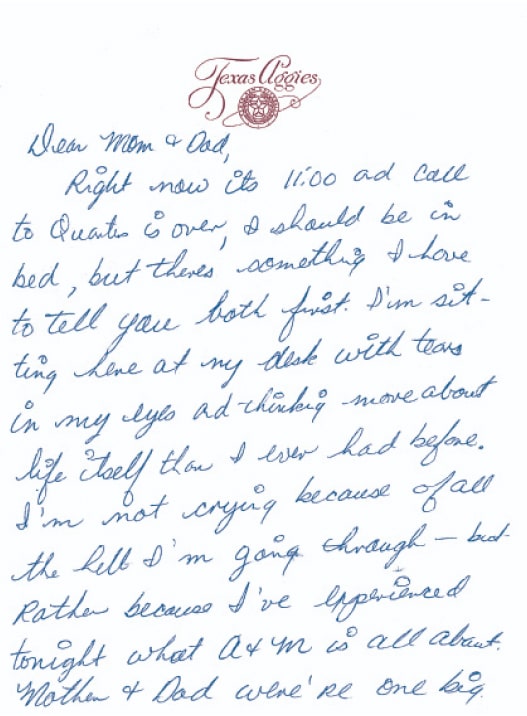 Texas Aggies
Dear Mom & Dad,
Right now its 11:00 ad call
to Quarters is over, I should be in
bed, but theres something I have
to tell you both first. I'm sit-
ting here at my desk with tears
in my eyes ad thinkig more about
life itself than I ever had before.
I'm not crying because of all
the hell I'm going through — but
Rather because I've experienced
tonight what A&M is all about.
Mother & Dad were're one big